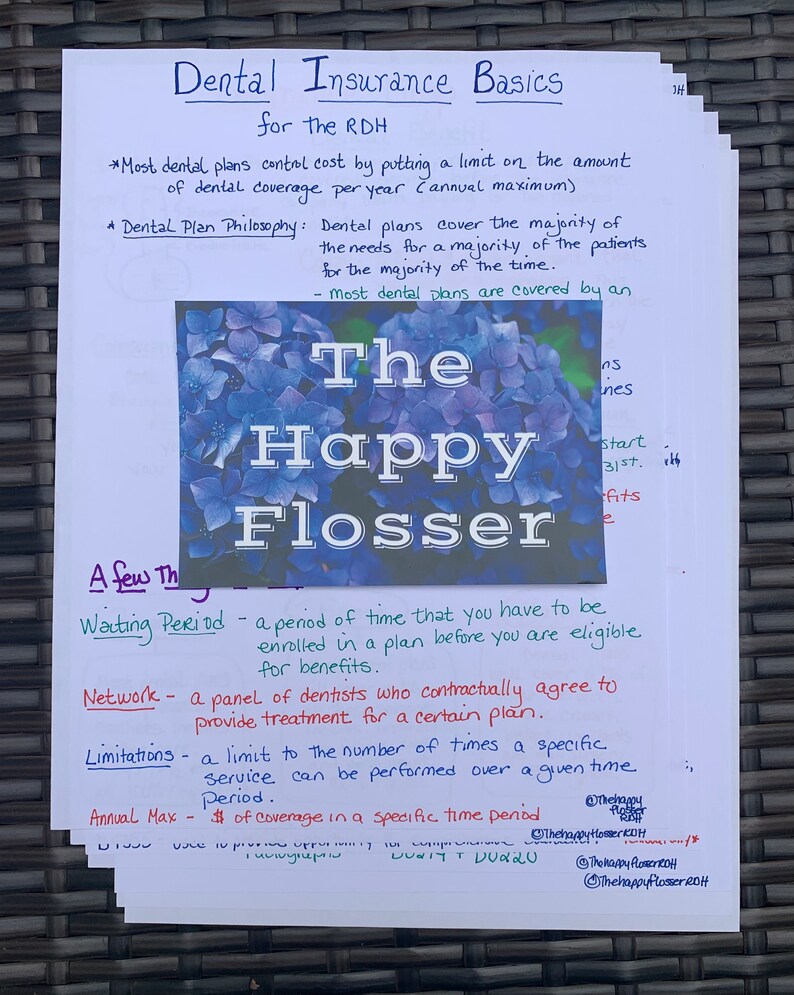 Dental Insurance Basics
for the RDH
*Most dental plans control cost by putting a limit on the amount
of dental coverage per year (annual maximum)
* Dental Plan Philosophy: Dental plans cover the majority of
the needs for a majority of the patients
for the majority of the time.
- most dental plans are covered by an
The
Happy
Flosser
start
31st.
A few
Waiting Period - a period of time that you have to be
enrolled in a plan before you are eligible
for benefits.
Network - a panel of dentists who contractually agree to
provide treatment for a certain plan.
Limitations - a limit to the number of times a specific
service can be performed over a given time
period.
Annual Max - $ of coverage in a specific time period
@Thehappy
flosser
RDH
©ThehappyflosserRDH
©ThehappyflosserRDH
©ThehappyflosserRDH